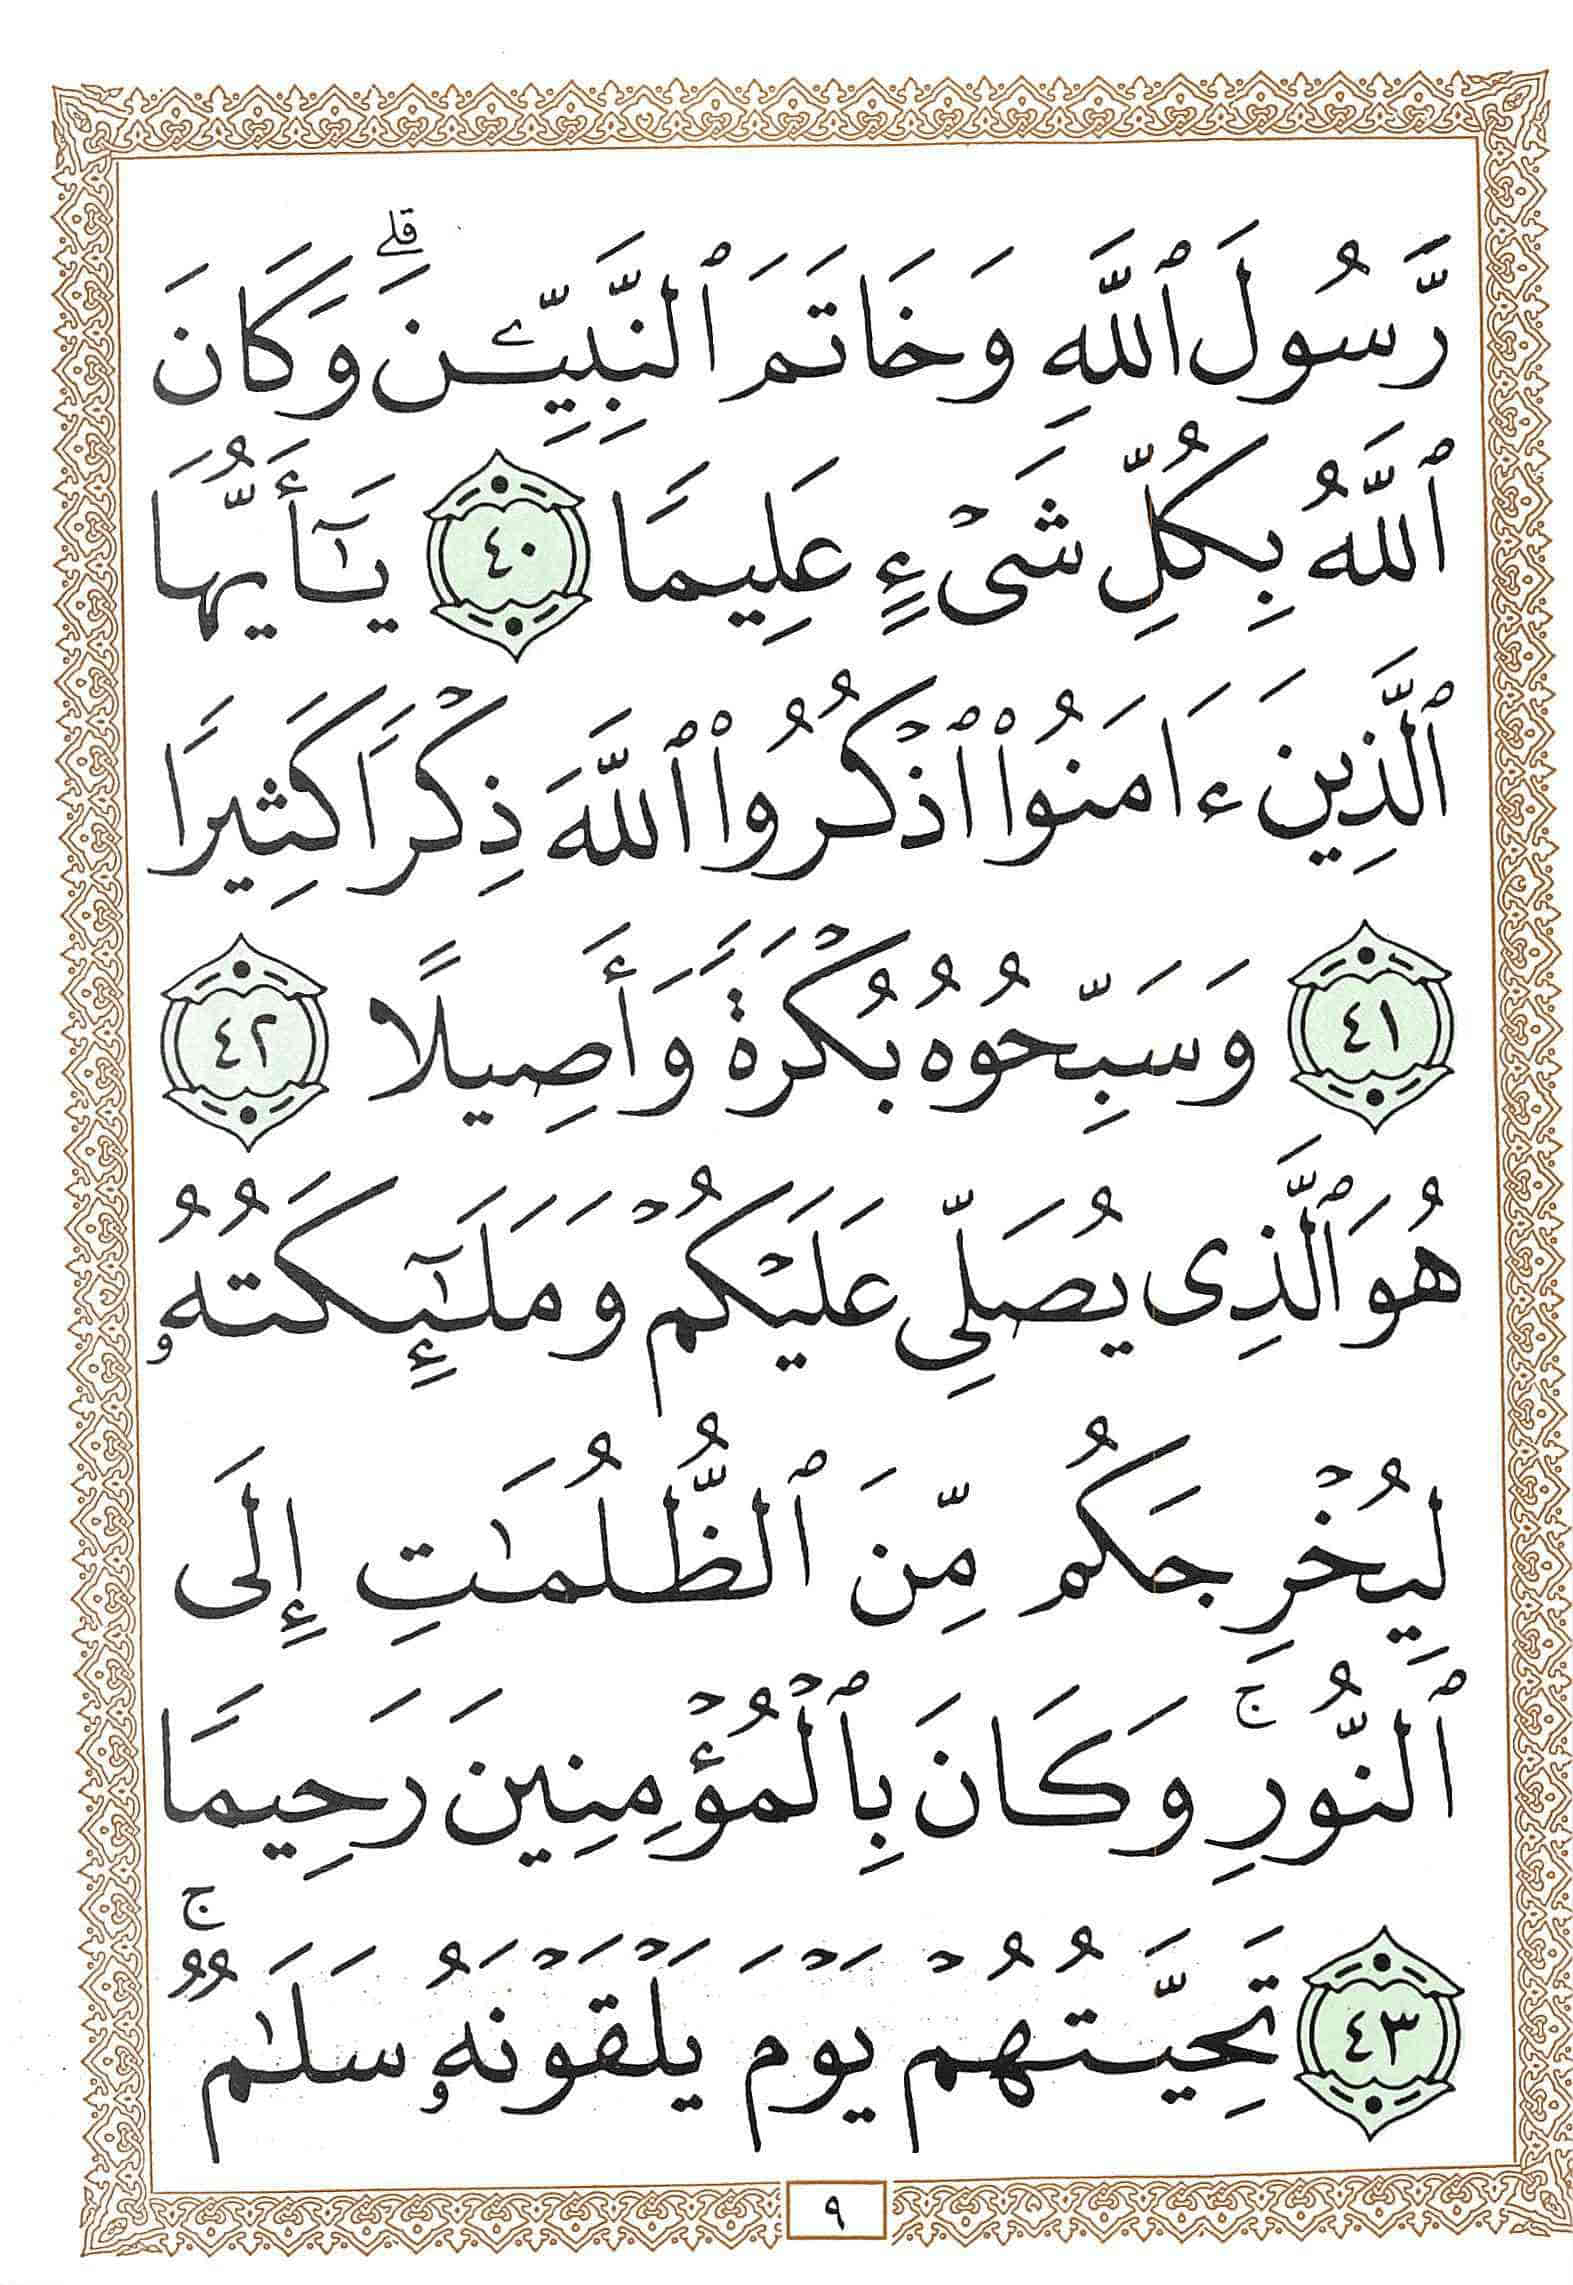 رَّسُولَ ٱللَّهِ وَخَاتَمَ ٱلنَّبِيِّـۧنَ ۗ وَكَانَ
ٱللَّهُ بِكُلِّ شَىْءٍ عَلِيمًا ٤٠ يَـٰٓأَيُّهَا
ٱلَّذِينَ ءَامَنُوا۟ ٱذْكُرُوا۟ ٱللَّهَ ذِكْرًا كَثِيرًا
٤١ وَسَبِّحُوهُ بُكْرَةً وَأَصِيلًا ٤٢
هُوَ ٱلَّذِى يُصَلِّى عَلَيْكُمْ وَمَلَـٰٓئِكَتُهُۥ
لِيُخْرِجَكُم مِّنَ ٱلظُّلُمَـٰتِ إِلَى
ٱلنُّورِ ۚ وَكَانَ بِٱلْمُؤْمِنِينَ رَحِيمًا
٤٣ تَحِيَّتُهُمْ يَوْمَ يَلْقَوْنَهُۥ سَلَـٰمٌ ۚ
٩